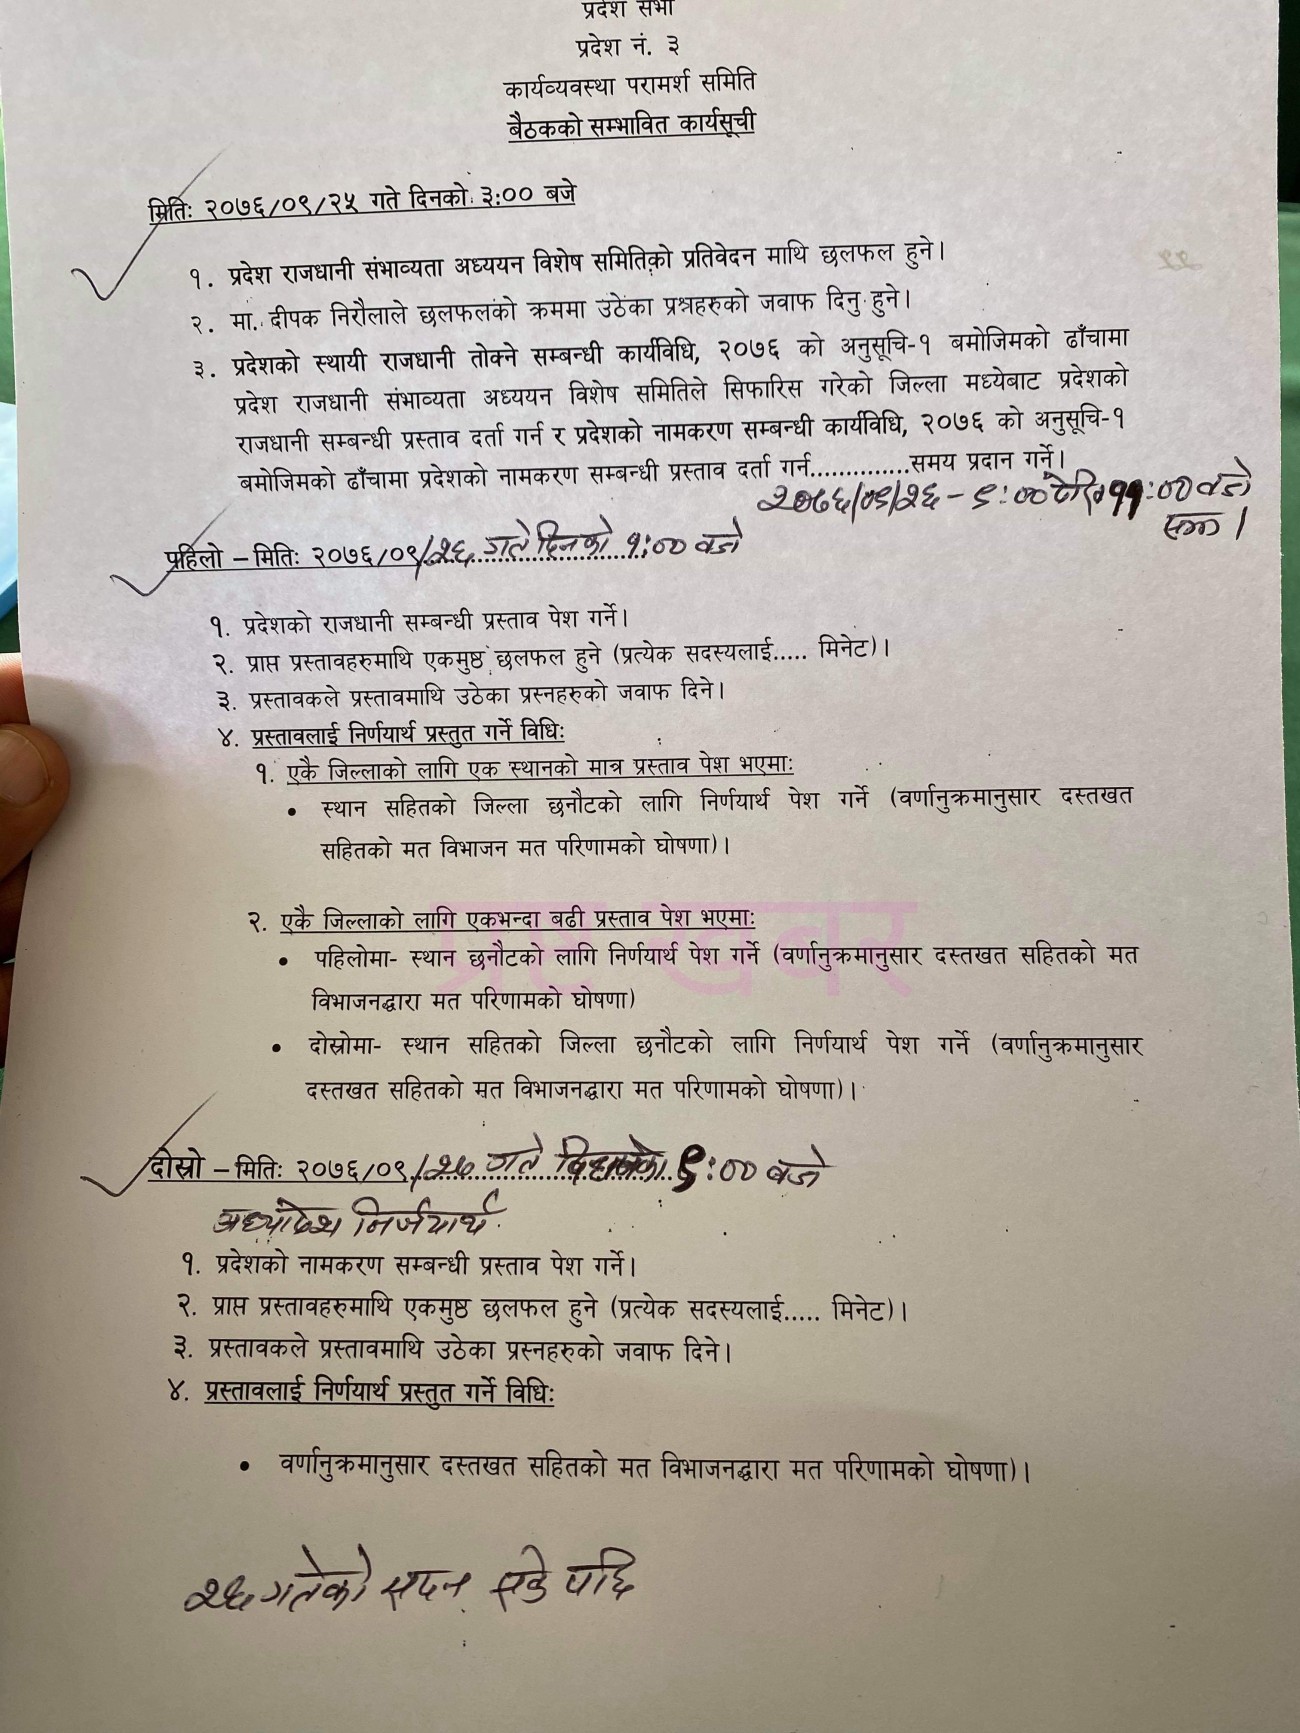 प्रदेश सभा
प्रदेश नं. ३
कार्यव्यवस्था परामर्श समिति
बैठकको सम्भावित कार्यसूची
मितिः २०७६/०९/२५ गते दिनको ३:०० बजे
१. प्रदेश राजधानी संभाव्यता अध्ययन विशेष समितिको प्रतिवेदन माथि छलफल हुने।
२. मा. दीपक निरौलाले छलफलको क्रममा उठेका प्रश्नहरुको जवाफ दिनु हुने।
३. प्रदेशको स्थायी राजधानी तोक्ने सम्बन्धी कार्यविधि, २०७६ को अनुसूचि-१ बमोजिमको ढाँचामा
प्रदेश राजधानी संभाव्यता अध्ययन विशेष समितिले सिफारिस गरेको जिल्ला मध्येबाट प्रदेशको
राजधानी सम्बन्धी प्रस्ताव दर्ता गर्न र प्रदेशको नामकरण सम्बन्धी कार्यविधि, २०७६ को अनुसूचि-१
बमोजिमको ढाँचामा प्रदेशको नामकरण सम्बन्धी प्रस्ताव दर्ता गर्न..............समय प्रदान गर्ने।
२०७६/०९/२६ - ९:०० देखि ११:०० बजे
सम्म।
पहिलो – मितिः २०७६/०९/२६ गते दिनको १:०० बजे
१. प्रदेशको राजधानी सम्बन्धी प्रस्ताव पेश गर्ने।
२. प्राप्त प्रस्तावहरुमाथि एकमुष्ठ छलफल हुने (प्रत्येक सदस्यलाई..... मिनेट)।
३. प्रस्तावकले प्रस्तावमाथि उठेका प्रस्नहरुको जवाफ दिने।
४. प्रस्तावलाई निर्णयार्थ प्रस्तुत गर्ने विधिः
१. एकै जिल्लाको लागि एक स्थानको मात्र प्रस्ताव पेश भएमाः
• स्थान सहितको जिल्ला छनौटको लागि निर्णयार्थ पेश गर्ने (वर्णानुक्रमानुसार दस्तखत
सहितको मत विभाजन मत परिणामको घोषणा)।
२. एकै जिल्लाको लागि एकभन्दा बढी प्रस्ताव पेश भएमाः
• पहिलोमा- स्थान छनौटको लागि निर्णयार्थ पेश गर्ने (वर्णानुक्रमानुसार दस्तखत सहितको मत
विभाजनद्धारा मत परिणामको घोषणा)
• दोस्रोमा- स्थान सहितको जिल्ला छनौटको लागि निर्णयार्थ पेश गर्ने (वर्णानुक्रमानुसार
दस्तखत सहितको मत विभाजनद्धारा मत परिणामको घोषणा)।
दोस्रो – मितिः २०७६/०९/२७ गते ९:०० बजे
अध्यादेश निर्णयार्थ
१. प्रदेशको नामकरण सम्बन्धी प्रस्ताव पेश गर्ने।
२. प्राप्त प्रस्तावहरुमाथि एकमुष्ठ छलफल हुने (प्रत्येक सदस्यलाई..... मिनेट)।
३. प्रस्तावकले प्रस्तावमाथि उठेका प्रस्नहरुको जवाफ दिने।
४. प्रस्तावलाई निर्णयार्थ प्रस्तुत गर्ने विधिः
• वर्णानुक्रमानुसार दस्तखत सहितको मत विभाजनद्धारा मत परिणामको घोषणा)।
२६ गतेको सदन पछि